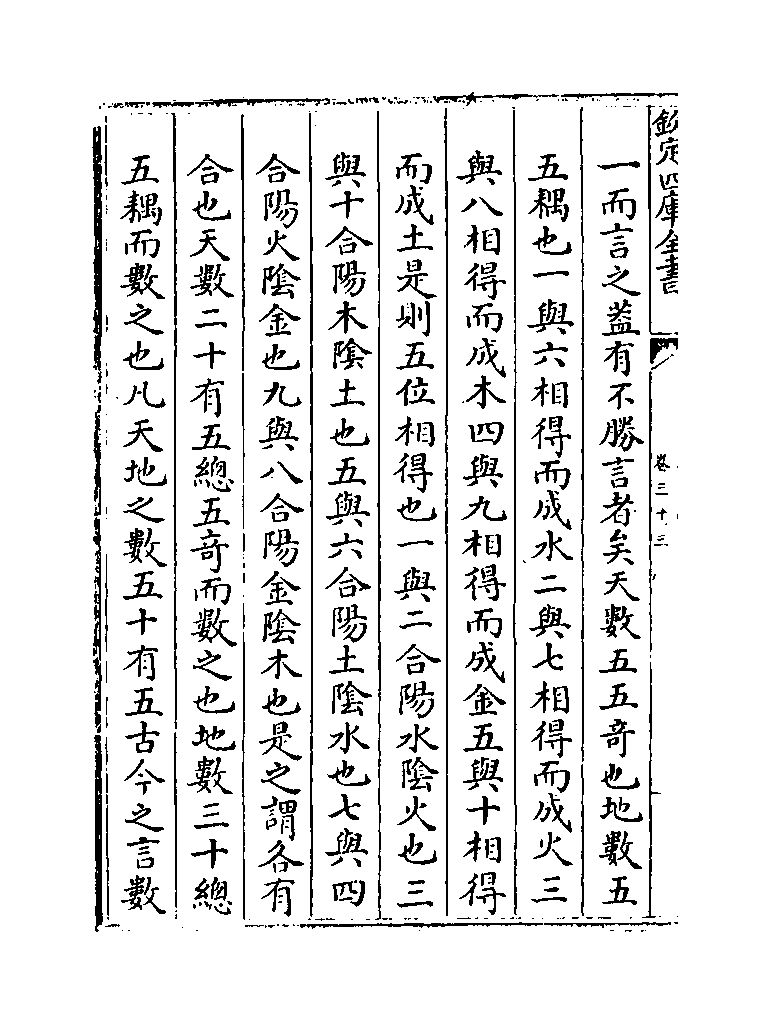 欽定四庫全書
卷三十三
一而言之葢有不勝言者矣天數五五奇也地數五
五耦也一與六相得而成水二與七相得而成火三
與八相得而成木四與九相得而成金五與十相得
而成土是則五位相得也一與二合陽水陰火也三
與十合陽木陰土也五與六合陽土陰水也七與四
合陽火陰金也九與八合陽金陰木也是之謂各有
合也天數二十有五總五奇而數之也地數三十總
五耦而數之也凡天地之數五十有五古今之言數